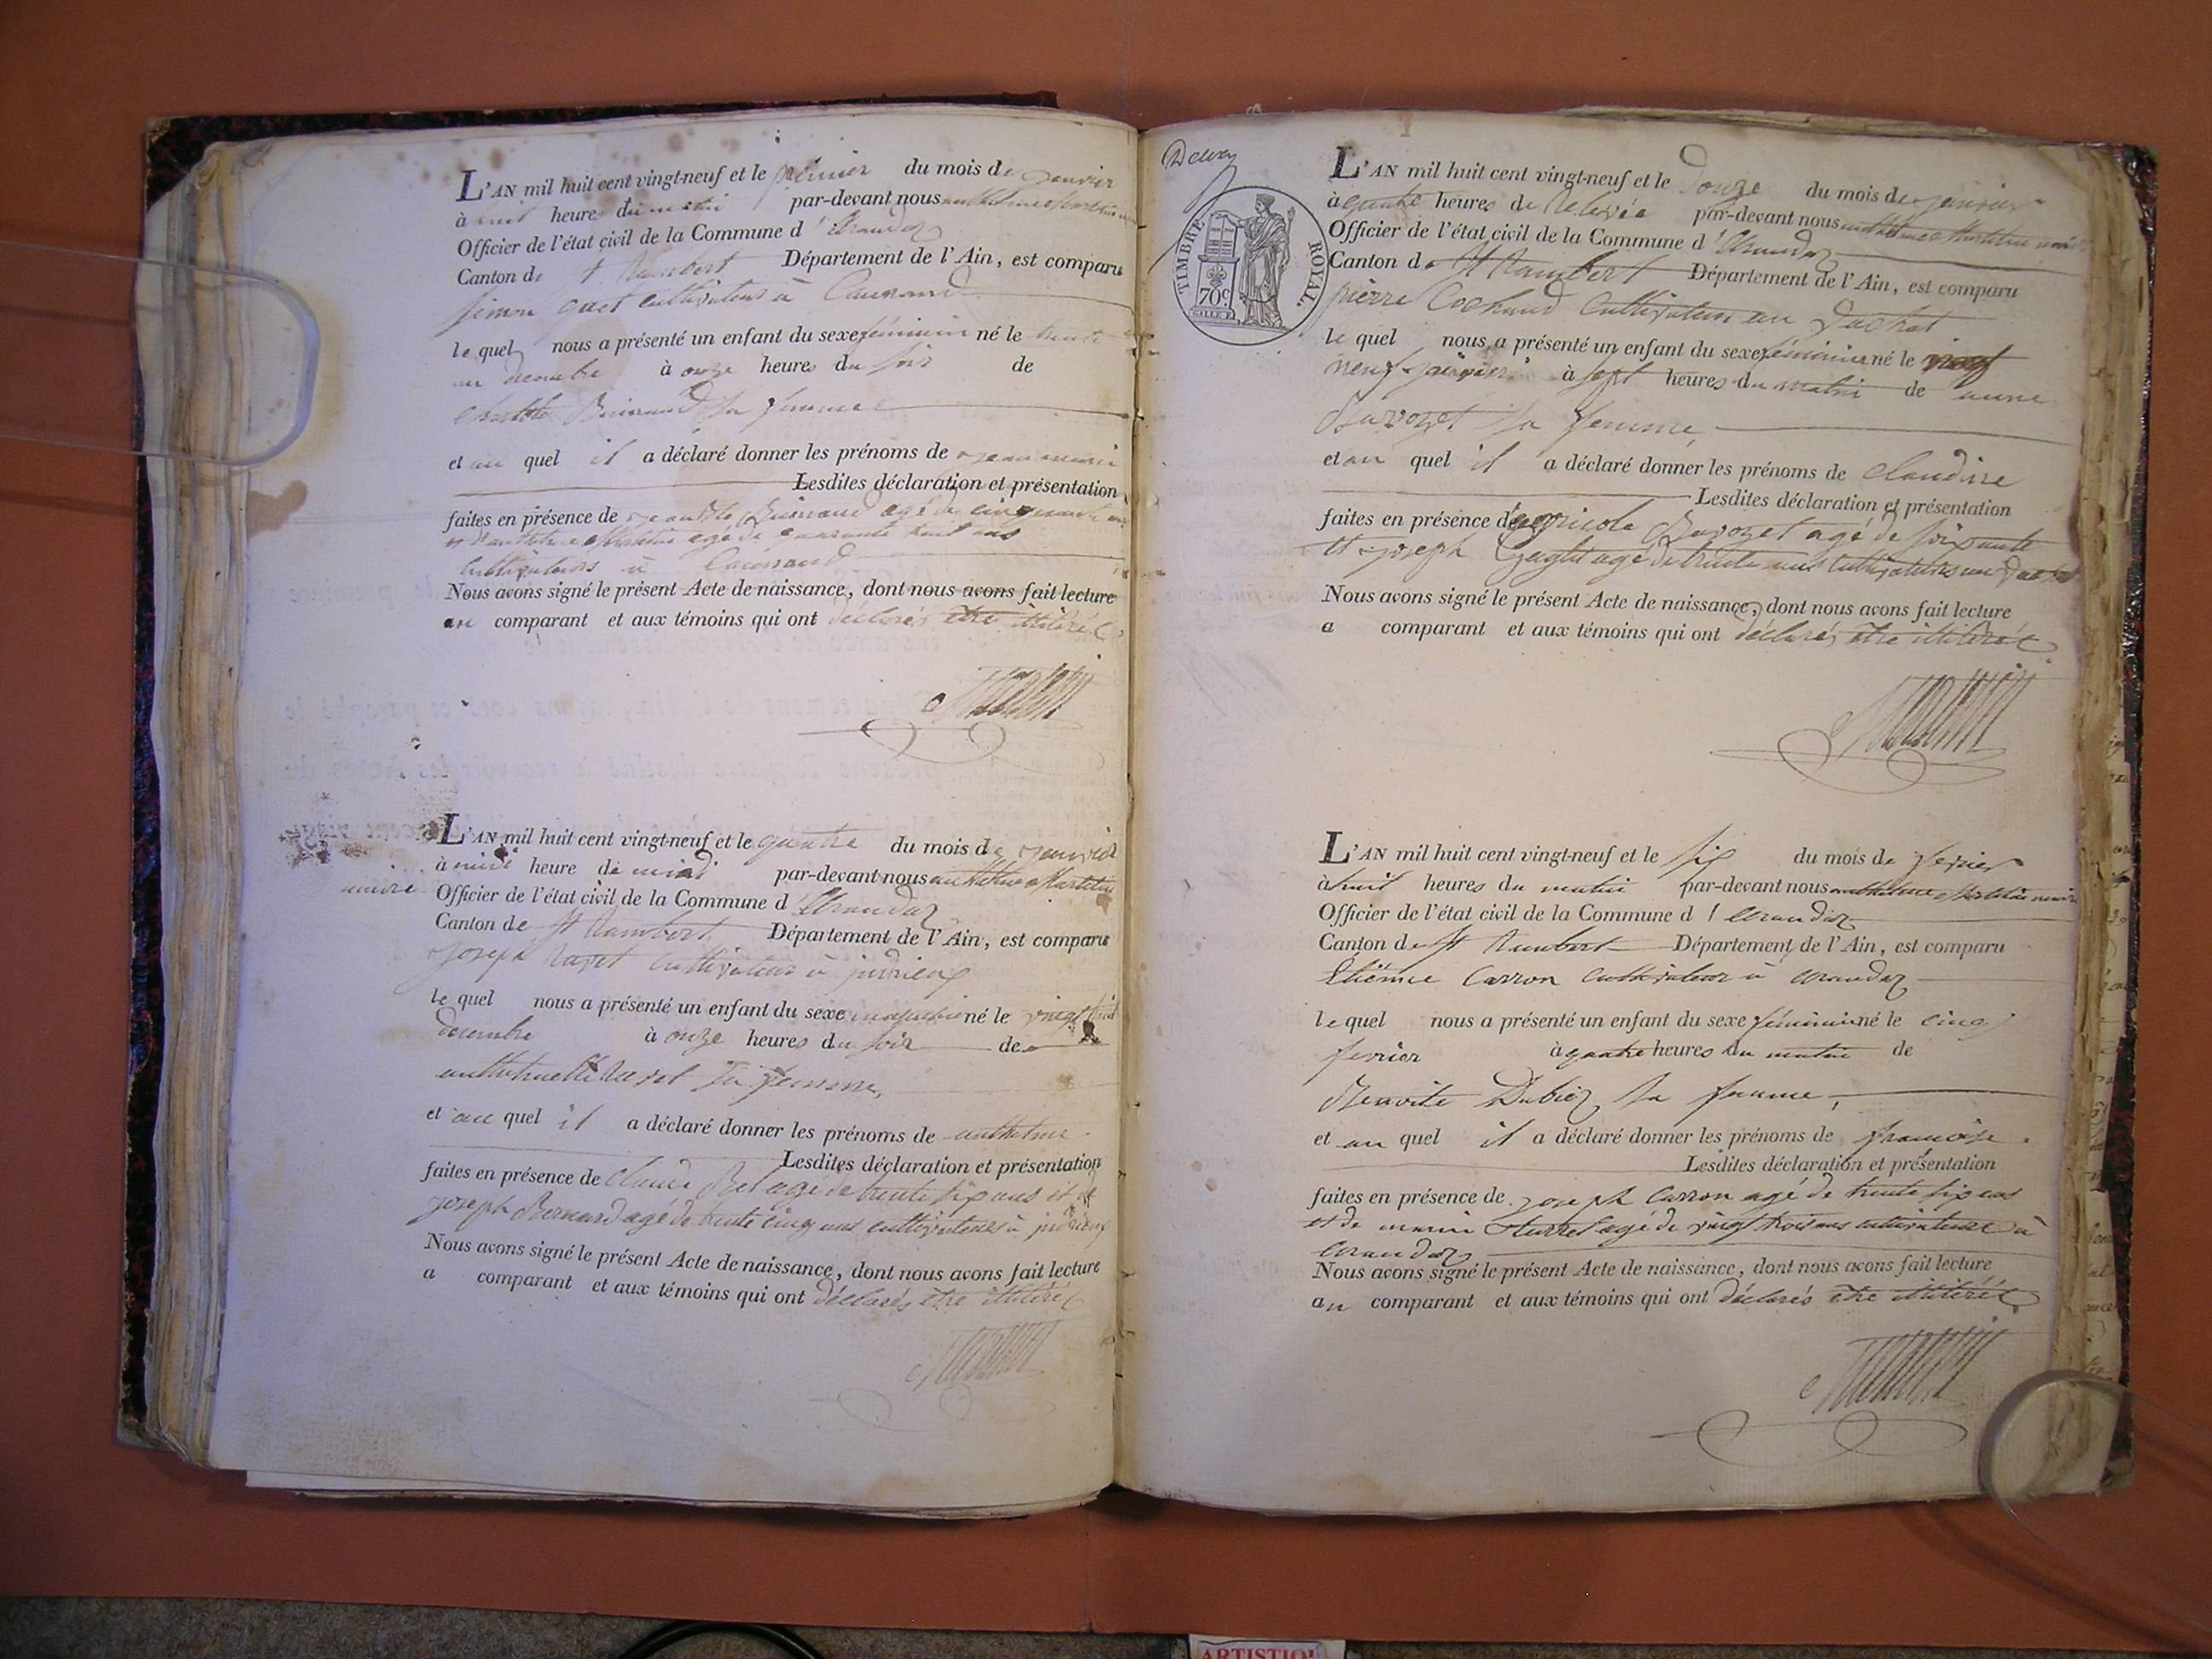 L'AN mil huit cent vingt-neuf et le premier du mois de janvier
à huit heures du matin par-devant nous
Officier de l'état civil de la Commune d'Arandaz
Canton de St Rambert Département de l'Ain, est comparu
simon cultivateur à
le quel nous a présenté un enfant du sexe féminin né le trente
un decembre à onze heures du soir de
sa femme
et au quel il a déclaré donner les prénoms de
Lesdites déclaration et présentation
faites en présence de agé de cinquante ans
et agé de quarante huit ans
cultivateurs à
Nous avons signé le présent Acte de naissance, dont nous avons fait lecture
au comparant et aux témoins qui ont déclarés être illitérés
L'AN mil huit cent vingt-neuf et le quatre du mois de janvier
à midi heure de midi par-devant nous anthelme Martin
maire Officier de l'état civil de la Commune d'Arandaz
Canton de St Rambert Département de l'Ain, est comparu
joseph cultivateur à
le quel nous a présenté un enfant du sexe masculin né le vingt huit
decembre à onze heures du soir de
sa femme,
et au quel il a déclaré donner les prénoms de anthelme
Lesdites déclaration et présentation
faites en présence de Claude agé de trente six ans et de
joseph Bernard agé de trente cinq ans cultivateurs à
Nous avons signé le présent Acte de naissance, dont nous avons fait lecture
a comparant et aux témoins qui ont déclarés être illitérés
TIMBRE ROYAL.
70c
L'AN mil huit cent vingt-neuf et le Douze du mois de janvier
à quatre heures de Relevée par-devant nous anthelme Martin maire
Officier de l'état civil de la Commune d'Arandaz
Canton de St Rambert Département de l'Ain, est comparu
pierre Cochand cultivateur au
le quel nous a présenté un enfant du sexe féminin né le
neuf janvier à sept heures du matin de anne
sa femme
et au quel il a déclaré donner les prénoms de Claudine
Lesdites déclaration et présentation
faites en présence d'agricole agé de soixante
et joseph agé de trente ans cultivateurs au
Nous avons signé le présent Acte de naissance, dont nous avons fait lecture
a comparant et aux témoins qui ont déclarés être illitérés
L'AN mil huit cent vingt-neuf et le six du mois de fevrier
à huit heures du matin par-devant nous anthelme Martin maire
Officier de l'état civil de la Commune d'arandaz
Canton de St Rambert Département de l'Ain, est comparu
Etiénne Carron cultivateur à arandaz
le quel nous a présenté un enfant du sexe féminin né le cinq
fevrier à quatre heures du matin de
Benoite Dubiez sa femme,
et au quel il a déclaré donner les prénoms de francoise.
Lesdites déclaration et présentation
faites en présence de joseph Carron agé de trente six ans
et de marin agé de vingt trois ans cultivateurs à
arandaz
Nous avons signé le présent Acte de naissance, dont nous avons fait lecture
au comparant et aux témoins qui ont déclarés être illitérés
ARTISTIQ